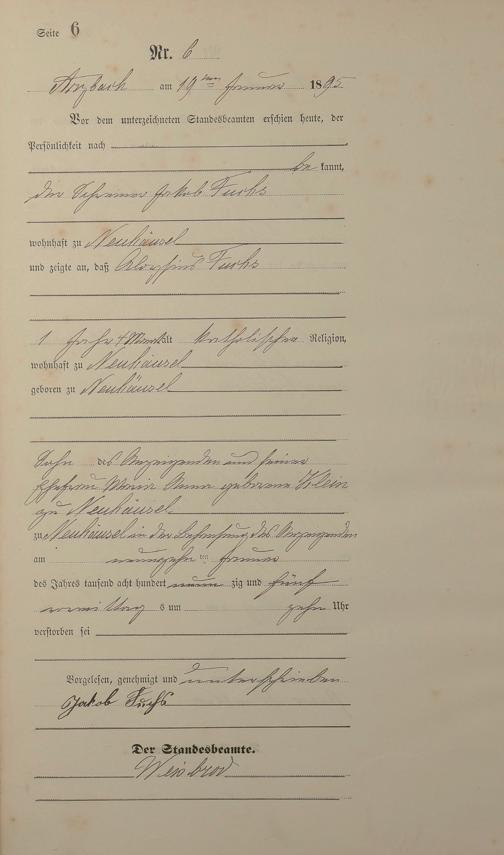 Seite 6
Nr. 6
Arzbach am 19ten Januar 1895
Vor dem unterzeichneten Standesbeamten erschien heute, der
Persönlichkeit nach
be kannt,
der Schreiner Jakob Fuchs
wohnhaft zu Neuhäusel
und zeigte an, daß Aloysius Fuchs
1 Jahr 4 Monat alt katholischer Religion,
wohnhaft zu Neuhäusel
geboren zu Neuhäusel
Sohn des Anzeigenden und seiner
Ehefrau Maria Anna geborene Klein
zu Neuhäusel
zu Neuhäusel in der Behausung des Anzeigenden
am neunzehn ten Januar
des Jahres tausend acht hundert neun zig und fünf
vormittags um zehn Uhr
verstorben sei
Vorgelesen, genehmigt und unterschrieben
Jakob Fuchs
Der Standesbeamte.
Weisbrod